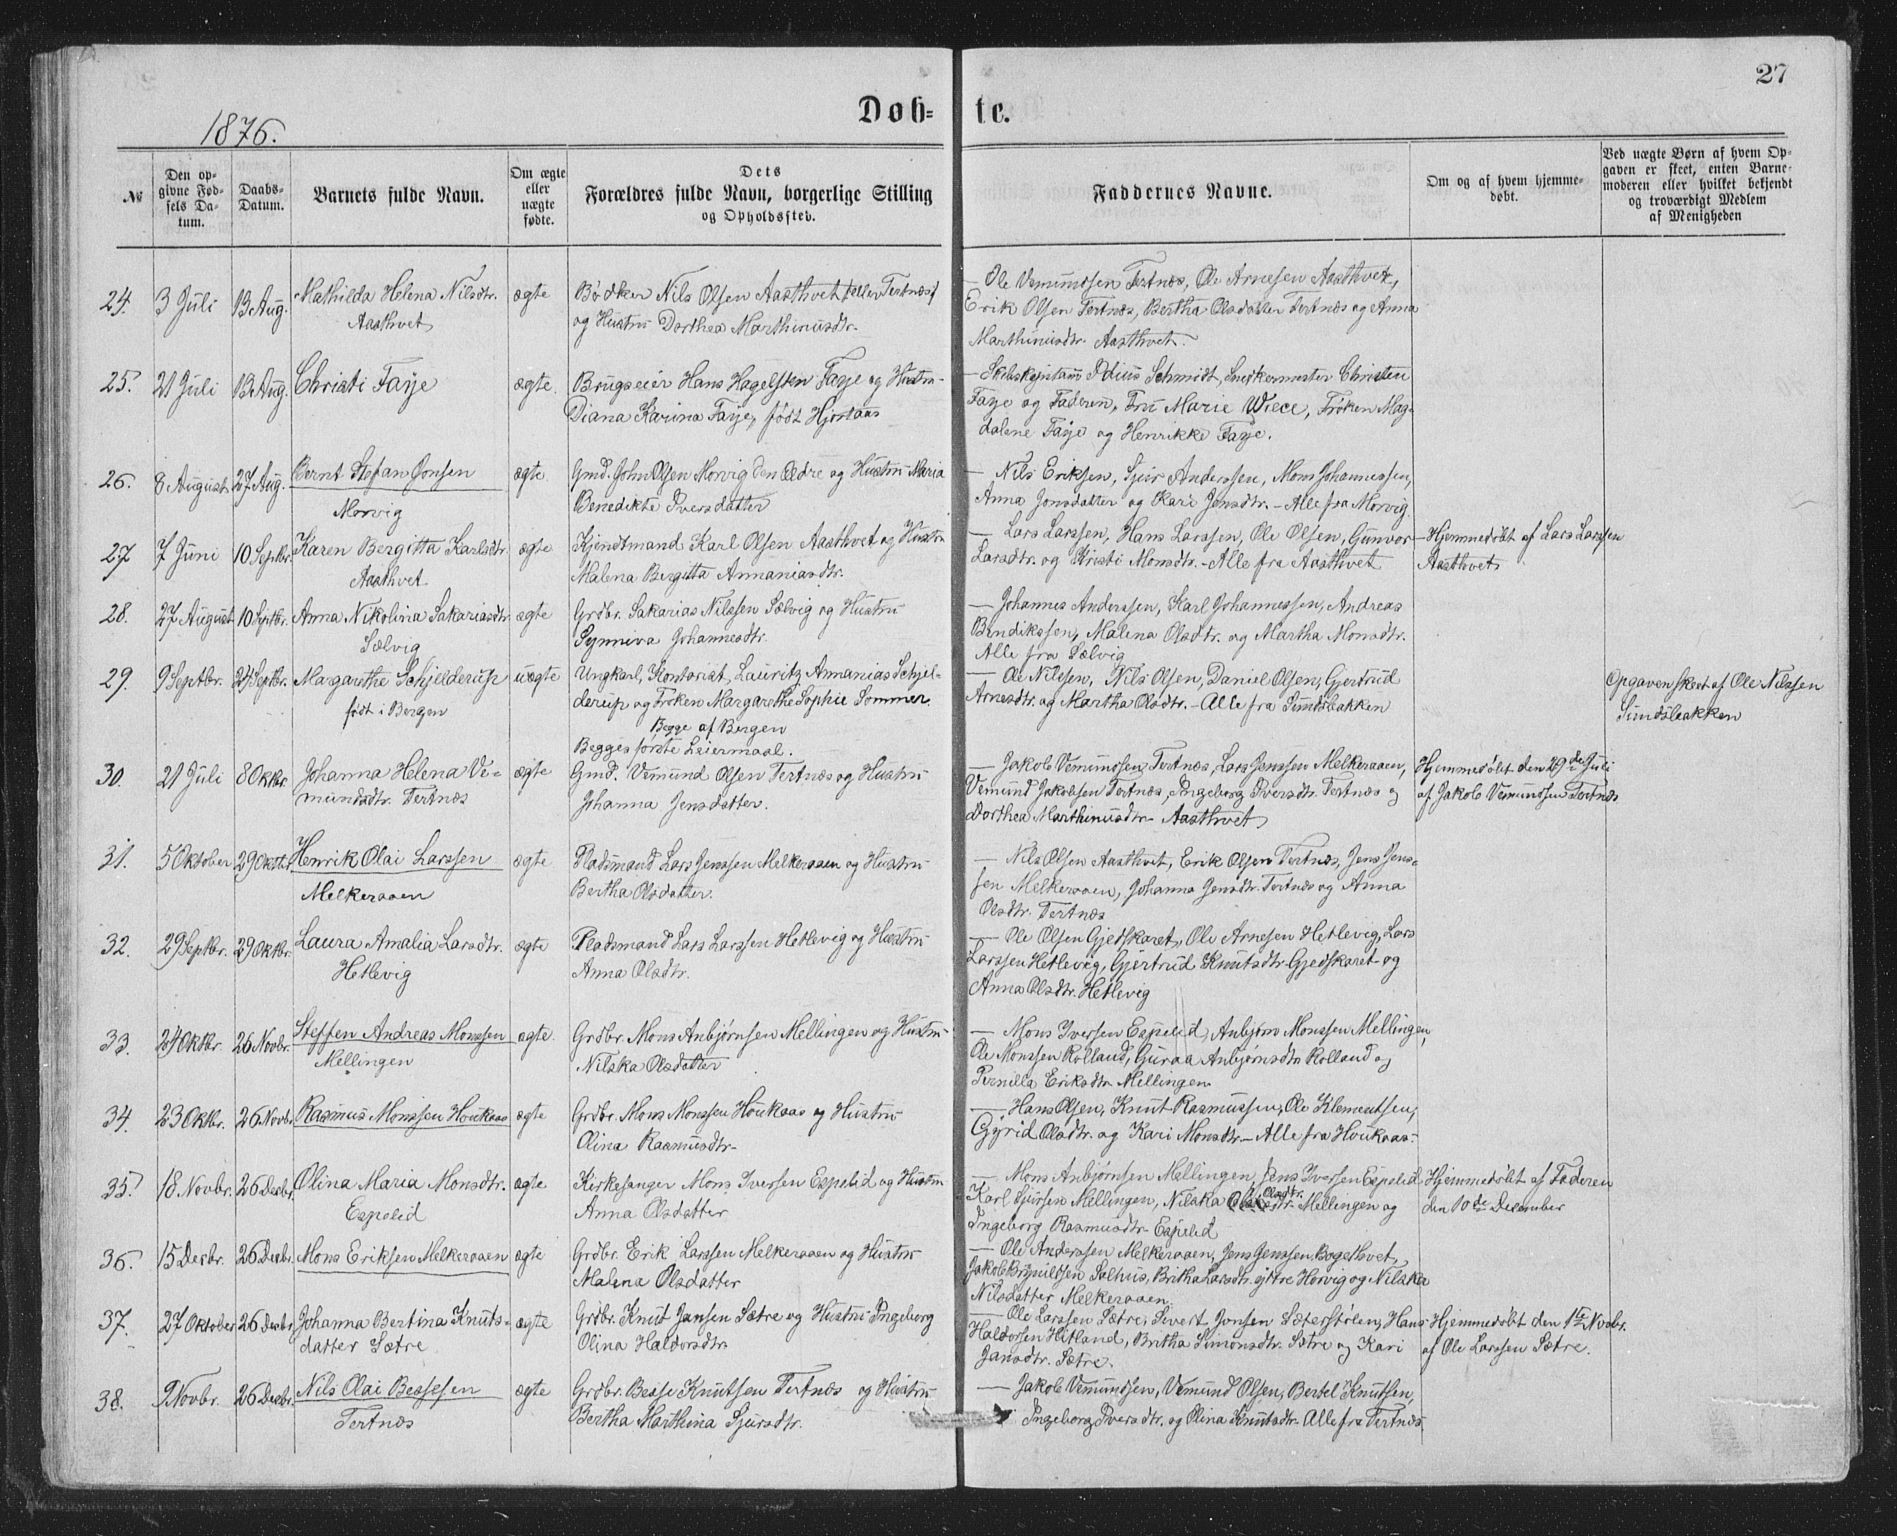 27
1876.
Døb- te.
№
Den opgivne Fødsels Datum.
Daabs-Datum.
Barnets fulde Navn.
Om ægte eller uægte fødte.
Dets Forældres fulde Navn, borgerlige Stilling og Opholdssted.
Faddernes Navne.
Om og af hvem hjemmedøbt.
Ved uægte Børn af hvem Opgaven er skeet, enten Barnemoderen eller hvilket bekjendt og troværdigt Medlem af Menigheden
24. 3 Juli 13 Aug. Mathilda Helena Nilsdtr. ægte Bødker Nils Olsen Aasthvet (eller Tertnæs) — Ole Vemundsen Tertnæs, Ole Arnesen Aasthvet,
Aasthvet og Hustru Dorthea Marthinusdtr. Erik Olsen Tertnæs, Bertha Olsdatter Tertnæs og Anna
Marthinusdtr. Aasthvet.
25. 21 Juli 13 Aug. Christi Faye ægte. Brugseier Hans Hagelsten Faye og Hustru — Skibskaptain Schmidt, Snikermester Christen
Diana Karina Faye, født Hjortaas Faye og Faderen, Fru Marie Wiece, Frøken Mag-
dalene Faye og Henrikke Faye.
26. 8 August 27 Aug. Bernt Stefan Jonsen ægte. Gmd. John Olsen Morvig den Ældre og Hustru Maria — Nils Eriksen, Sjur Anderssen, Mons Johannessen,
Morvig Benedikte Iversdatter Anna Jonsdatter og Kari Jensdtr. — Alle fra Morvig.
27 7 Juni 10 Septbr. Karen Bergitta Karlsdtr. ægte Kjendtmand Karl Olsen Aasthvet og Hustru — Lars Larssen, Hans Larssen, Ole Olsen, Gunvor Hjemmedøbt af Lars Larssen
Aasthvet. Malena Bergitta Annaniasdtr. Larsdtr. og Kristi Monsdtr. — Alle fra Aasthvet Aasthvet
28. 27 August 10 Septbr. Anna Nikolina Sakariasdtr. ægte Grdbr. Sakarias Nilssen Sælvig og Hustru — Johannes Anderssen, Karl Johannessen, Andreas
Sælvig Synneva Johannesdtr. Bendikssen, Malena Olsdtr. og Martha Monsdtr.
Alle fra Sælvig
29. 9 Septbr. 24 Septbr. Margarethe Schjelderup uægte Ungkarl, Kontorist, Lauritz Annanias Schjel- — Ole Nilssen, Nils Olsen, Daniel Olsen, Gjertrud Opgaven skeet af Ole Nilssen
født i Bergen derup og Frøken Margarethe Sophie Sommer Arnesdtr. og Martha Olsdtr. — Alle fra Sundsbakken Sundsbakken
Begge af Bergen
Begges første Leiermaal.
30. 21 Juli 8 Oktbr. Johanna Helena Ve- ægte Gmd. Vemund Olsen Tertnæs og Hustru — Jakob Vemundsen Tertnæs, Lars Jenssen Melkeraaen, Hjemmedøbt den 29de Juli
mundsdtr. Tertnæs Johanna Jensdatter. Vemund Jakobsen Tertnæs, Ingeborg Iversdtr. Tertnæs og af Jakob Vemundsen Tertnæs
Dorthea Marthinusdtr. Aasthvet
31. 5 Oktober 29 Oktbr. Henrik Olai Larssen ægte Pladsmand Lars Jenssen Melkeraaen og Hustru — Nils Olsen Aasthvet, Erik Olsen Tertnæs, Jens Jens-
Melkeraaen Bertha Olsdatter. sen Melkeraaen, Johanna Jensdtr. Tertnæs og Anna
Olsdtr. Tertnæs
32. 29 Septbr. 29 Oktbr. Laura Amalia Larsdtr. ægte Pladsmand Lars Larssen Hetlevig og Hustru — Ole Olsen Gjedskaret, Ole Arnesen Hetlevig, Lars
Hetlevig Anna Olsdtr. Larssen Hetlevig, Gjertrud Knutsdtr. Gjedskaret og
Anna Olsdtr. Hetlevig
33. 24 Oktbr. 26 Novbr. Steffen Andreas Monssen ægte. Grdbr. Mons Anbjørnsen Mellingen og Hustru — Mons Iversen Espelid, Anbjørn Monssen Mellingen,
Mellingen Nilska Olsdatter Ole Monssen Rolland, Guraa Anbjørnsdtr. Rolland og
Pernilla Eriksdtr. Mellingen.
34. 23 Oktbr. 26 Novbr. Rasmus Monssen Houkaas ægte Grdbr. Mons Monssen Houkaas og Hustru — Hans Olsen, Knut Rasmussen, Ole Klementsen,
Olina Rasmusdtr. Gyrid Olsdtr. og Kari Monsdtr. — Alle fra Houkaas.
35. 18 Novbr. 26 Desbr. Olina Maria Monsdtr. ægte Kirkesanger Mons Iversen Espelid og Hustru — Mons Anbjørnsen Mellingen, Jens Iversen Espelid, Hjemmedøbt af Faderen
Espelid Anna Olsdatter Karl Sjursen Mellingen, Nilska Olsdtr. Mellingen og den 10de Desember
Ingeborg Rasmusdtr. Espelid
36. 15 Desbr. 26 Desbr. Mons Eriksen Melkeraaen ægte Grdbr. Erik Larssen Melkeraaen og Hustru — Ole Anderssen Melkeraaen, Jens Jenssen Bogethvet,
Malena Olsdatter Jakob Brynildsen Salhus, Britha Larsdtr. yttre Horvig og Nilska
Nilsdatter Melkeraaen.
37. 27 Oktober 26 Desbr. Johanna Bertina Knuts- ægte Grdbr. Knut Jansen Sætre og Hustru Ingeborg — Ole Larssen Sætre, Sivert Jonsen Sæterstølen, Hans Hjemmedøbt den 1ste Novbr.
datter Sætre Olina Haldorsdtr. Haldorsen Hitland, Britha Simonsdtr. Sætre og Kari af Ole Larssen Sætre.
Jansdtr. Sætre.
38. 9 Novbr. 26 Desbr. Nils Olai Bessesen ægte Grdbr. Besse Knutsen Tertnæs og Hustru — Jakob Vemundsen, Vemund Olsen, Bertel Knutsen,
Tertnæs Bertha Marthina Sjursdtr. Ingeborg Iversdtr. og Olina Knutsdtr. Alle fra Tertnæs